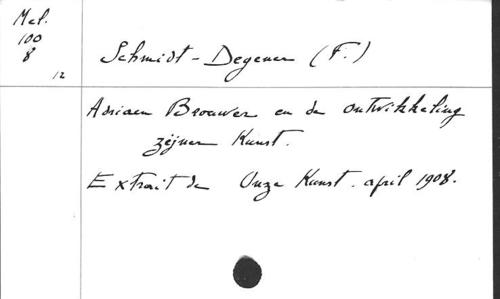 Mel.
100
8
12
Schmidt-Degener (F.)
Adriaen Brouwer en de ontwikkeling
zijner Kunst.
Extrait de Onze Kunst. april 1908.